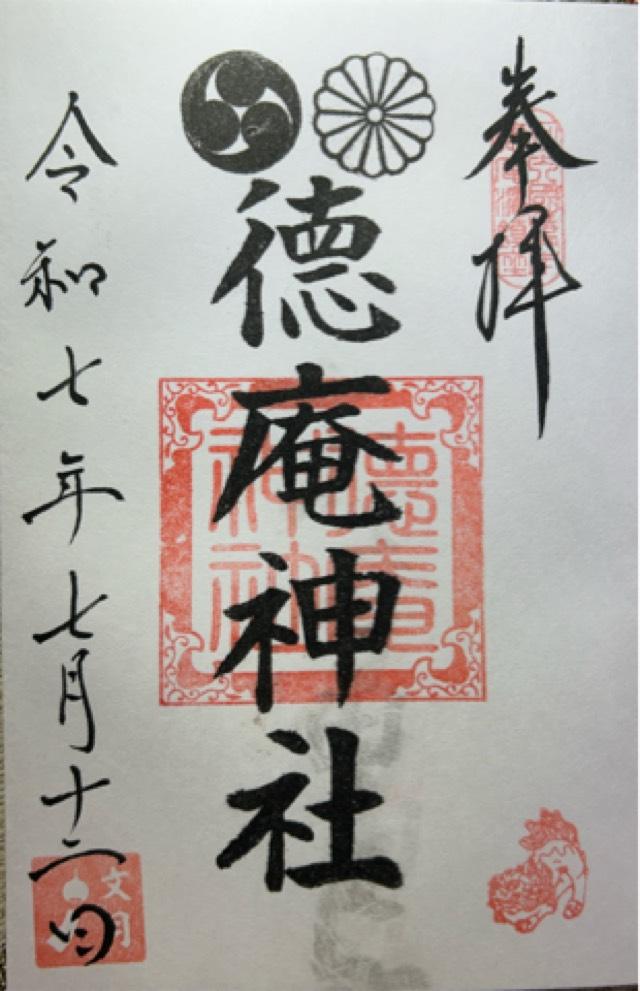 奉拝
徳庵神社
徳庵神社
令和七年七月十二日
文月